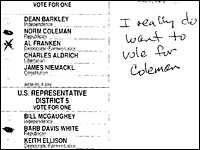 VOTE FOR ONE
DEAN BARKLEY
Independence
NORM COLEMAN
Republican
AL FRANKEN
Democratic-Farmer-Labor
CHARLES ALDRICH
Libertarian
JAMES NIEMACKL
Constitution
U.S. REPRESENTATIVE
DISTRICT 5
VOTE FOR ONE
BILL MCGAUGHEY
Independence
BARB DAVIS WHITE
Republican
KEITH ELLISON
Democratic-Farmer-Labor
I really do
want to
vote for
Coleman